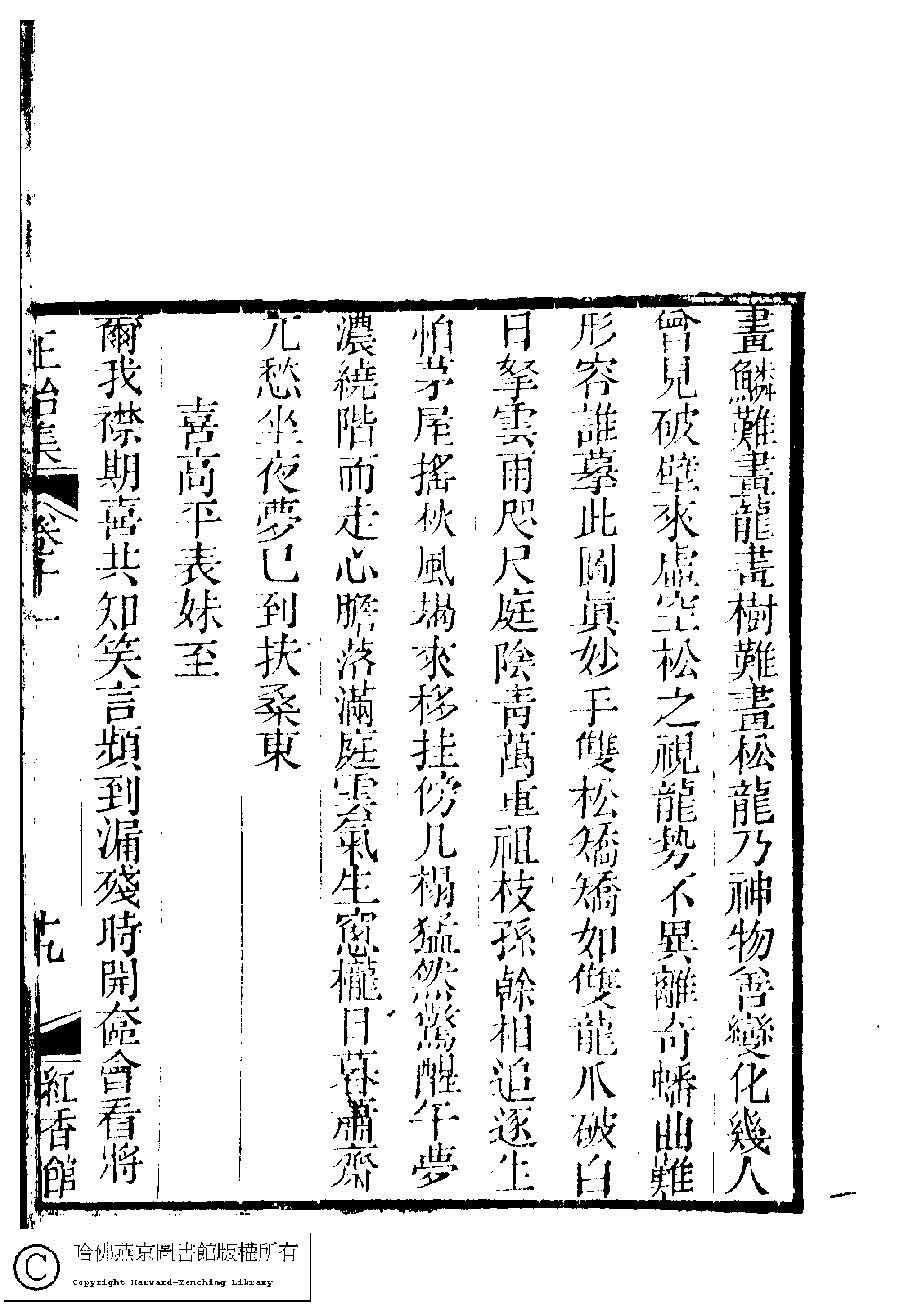 畫鱗難畫龍畫樹難畫松龍乃神物善變化幾人
曾見破壁來虛空松之視龍勢不異離奇蟠曲難
形容誰摹此圖眞妙手雙松矯矯如雙龍爪破白
日拏雲雨咫尺庭陰靑萬重祖枝孫榦相追逐生
怕茅屋搖秋風朅來移挂傍几榻猛然驚醒午夢
濃繞階而走心膽落滿庭雲氣生窻櫳日暮蕭齋
兀愁坐夜夢已到扶桑東
喜高平表妹至
爾我襟期喜共知笑言頻到漏殘時開奩會看將
正始集
卷十一
十九
紅香館
哈佛燕京圖書館版權所有
Copyright Harvard-Yenching Library